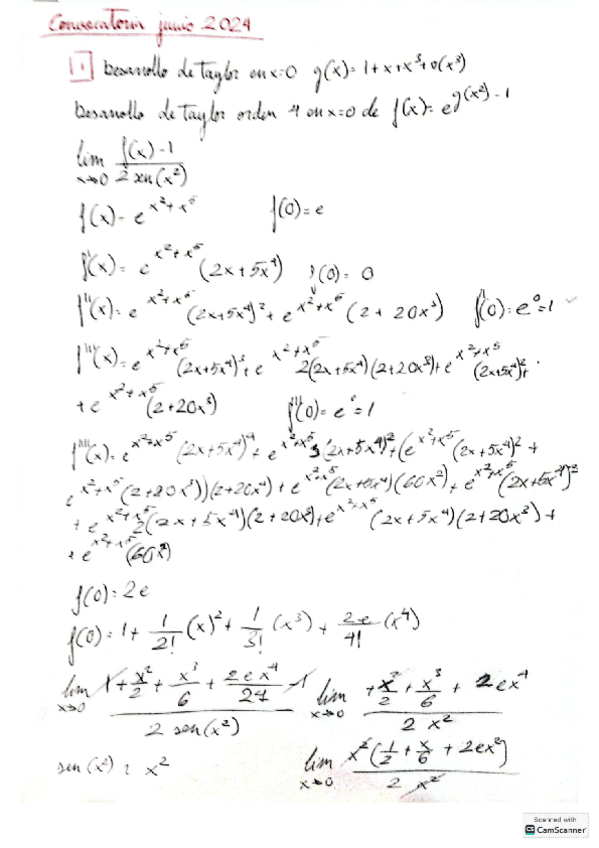 Convocatoria junio 2024
1. Desarrollo de Taylor en x=0 g(x)= 1+x+x³+o(x³)
Desarrollo de Taylor orden 4 en x=0 de f(x)= e^(g(x²)-1)
lim x→0 (f(x)-1)/(2 sen(x²))
f(x)= e^(x²+x⁵) f(0)=e
f'(x)= e^(x²+x⁵) (2x+5x⁴) f'(0)= 0
f''(x)= e^(x²+x⁵) (2x+5x⁴)² + e^(x²+x⁵) (2+20x³) f''(0)=e⁰=1
f'''(x)= e^(x²+x⁵) (2x+5x⁴)³ + e^(x²+x⁵) 2(2x+5x⁴)(2+20x³)+e^(x²+x⁵) (2x+5x⁴)²+
+ e^(x²+x⁵) (2+20x³) f'''(0)=e⁰=1
f''''(x)= e^(x²+x⁵) (2x+5x⁴)⁴ + e^(x²+x⁵) (2x+5x⁴)²+(e^(x²+x⁵) (2x+5x⁴)² +
e^(x²+x⁵) (2+20x³))(2+20x⁴) + e^(x²+x⁵) (2x+5x⁴)(60x²)+ e^(x²+x⁵) (2x+5x⁴)²
+ e^(x²+x⁵) 2(2x+5x⁴)(2+20x³)+e^(x²+x⁵) (2x+5x⁴)(2+20x³) +
+ e^(x²+x⁵) (60x²)
f(0)= 2e
f(0)= 1+ 1/2! (x)² + 1/3! (x³) + 2e/4! (x⁴)
lim x→0 (1+ x²/2 + x³/6 + 2ex⁴/24 - 1)/(2 sen(x²)) lim x→0 (+x²/2 + x³/6 + 2ex⁴)/(2 x²)
sen(x²) ≈ x² lim x→0 x²(1/2 + x/6 + 2ex²)/(2 x²)
Scanned with
CS CamScanner